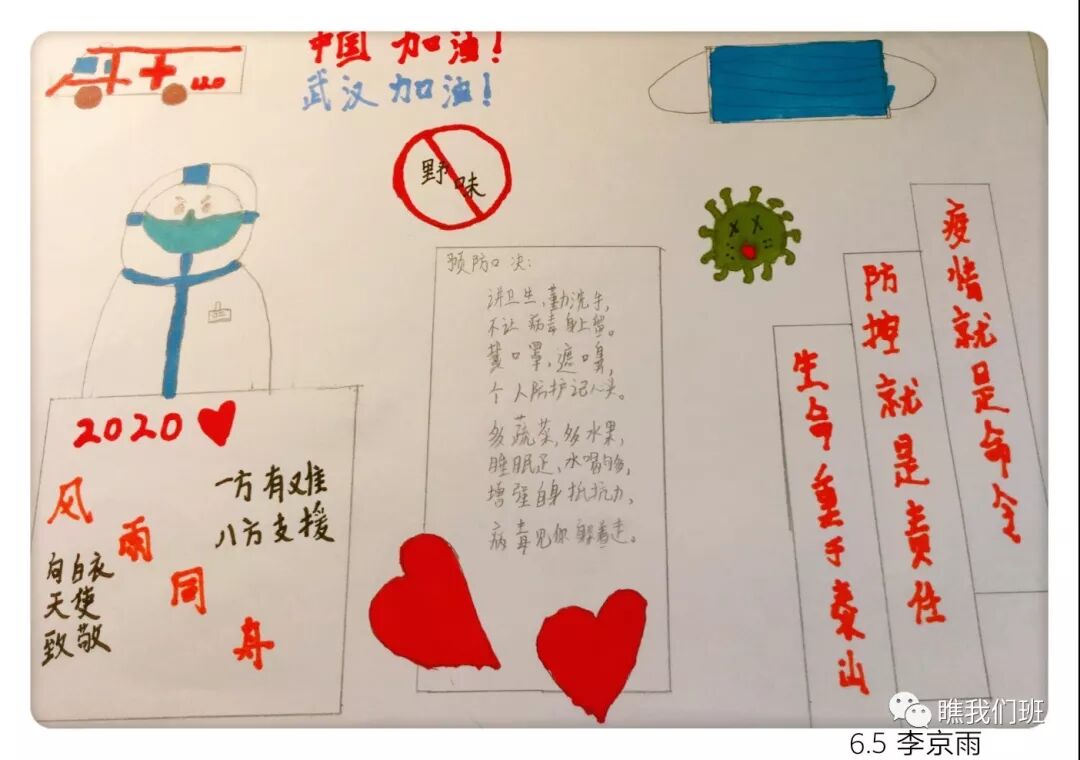 中国 加油!
武汉 加油!
120
野味
预防口决:
讲卫生,勤洗手,
不让病毒身上留。
戴口罩,遮口鼻,
个人防护记心头。
多蔬菜,多水果,
睡眠足,水喝够,
增强自身抵抗力,
病毒见你躲着走。
疫情就是命令
防控就是责任
生命重于泰山
2020
风雨同舟
一方有难
八方支援
向白衣
天使
致敬
瞧我们班
6.5 李京雨